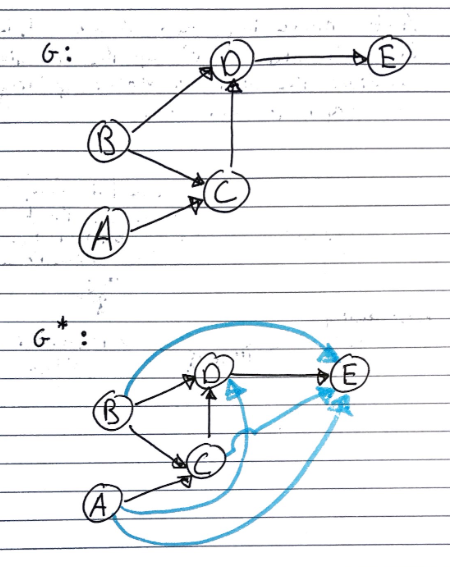 G:
D
E
B
C
A
G*:
D
E
B
C
A